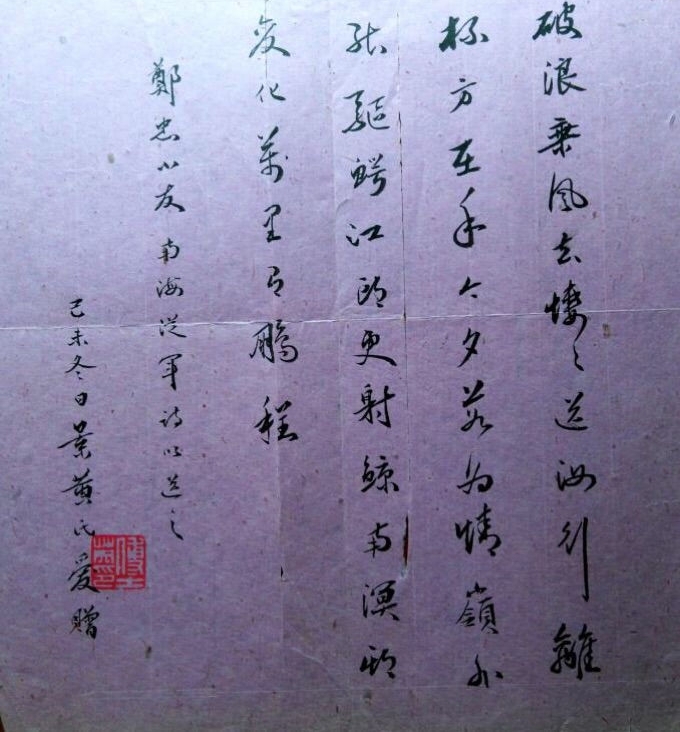 破浪乘风去悽〻送汝行離
杯方在手今夕若為情嶺外
能驅鱷江頭更射鯨南溟
變化萬里有鵬程
鄭忠小友南海從軍詩以送之
己未冬日葉氏爱赠